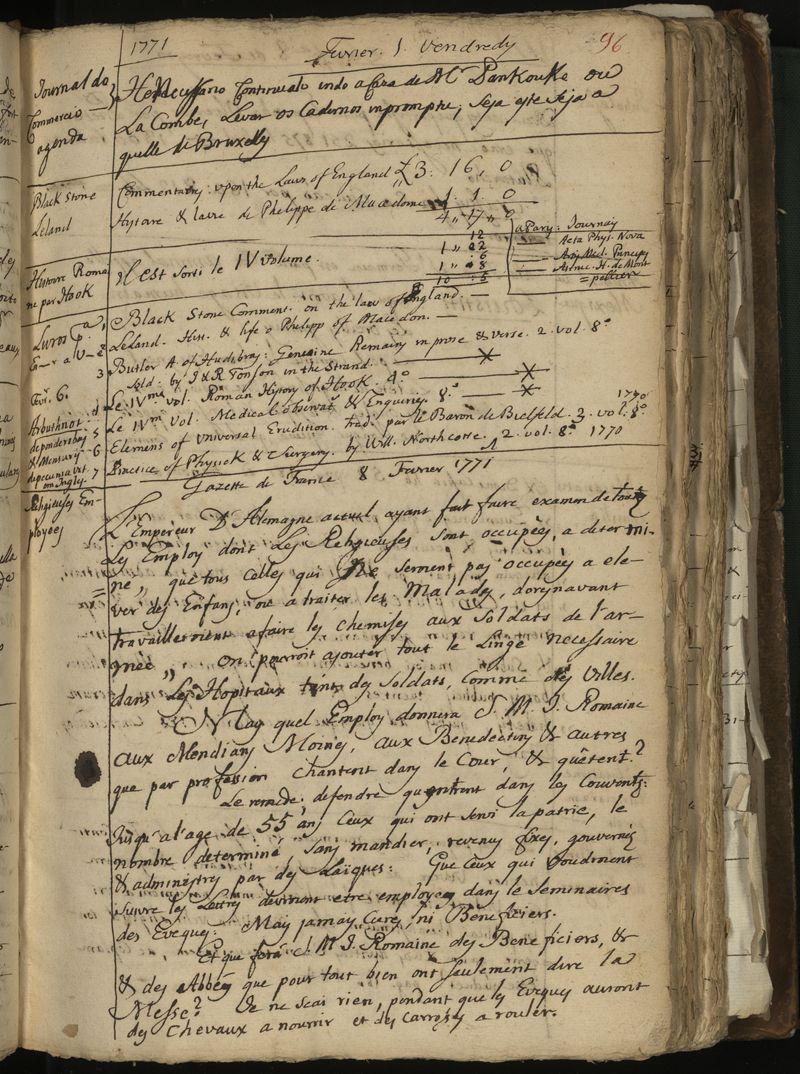 1771 Fevrier. 1. Vendredy 96
Journal do
Commercio
agenda
He necessario Continualo indo a Caza de Mr. Pankouke ou
La Combe, Levar os Cadernos in promptu, Seja este Seja a
quelle de Bruxelles
Black Stone
Leland
Commentaries upon the Laws of England £ 3. 16, 0
Hystoire & la vie de Philippe de Macedoine 1 1 0
4 „ 17 „ 0
Histoire Roma
ne par Hook
Il est sorti le IV volume.
12
1 „ 22
6
1 „ 8
a Pary: Journay
Acta Phys. Nova
Livros
Black Stone Comment. on the law of England. —
2 Leland. Hist. & life o Philipp of Macedon. —
3 Butler A. of Hudibras: Genuine Remains in prose & verse. 2. vol. 8º
Sold. by J & R Tonson in the Strand.
Le IVme vol. Roman History of Hook. 4º
Le IVm Vol. Medical Observat. & Enquiries. 8º
Elemens of Universal Erudition. trad. par le Baron de Bielfeld. 3. vol. 8º 1770
Practice of Physick & Surgery. by Will. Northcotte. 2. vol. 8º 1770
Fevr. 6.
Arbuthnot 4
de ponderibus 5
& Mensuris 6
7
Gazette de France 8 Fevrier 1771
Religieuses Em-
ployes
L'Empereur D'Alemagne actuel, ayant fait faire examen de touts
Les Employ dont Les Religieuses sont occupées, a determi-
né, que tous celles qui Ne seroient pas occupées a ele-
ver des Enfans, ou a traiter les Malades, dorenavant
travailleroient a faire les chemises aux Soldats de l'ar-
mée „ On pourroit ajouter tout le Linge necessaire
dans Les Hopitaux tant des Soldats, comme des Villes.
Mais quel Employ donnera S. M. I. Romaine
aux Mendians Moines, aux Benedectins & autres
que par profession chantent dans le Cour, & quêtent?
Le remede, defendre qu'entrent dans les Couvents:
Jusqu'a l'age de 55 ans Ceux qui ont servi la patrie, le
nombre determiné sans mandier, revenus fixes, gouvernés
& administrés par des Laïques: Que Ceux qui voudroient
suivre les Lettres devroient etre employes dans le Seminaires
des Eveques: Mais jamais Cures, ni Beneficiers.
Et que ferà S. M. I. Romaine des Beneficiers, &
& des Abbés que pour tout bien ont seulement dire la
Messe? Je ne scai rien, pendant que les Eveques auront
des Chevaux a nourrir et des Carrosses a rouler.